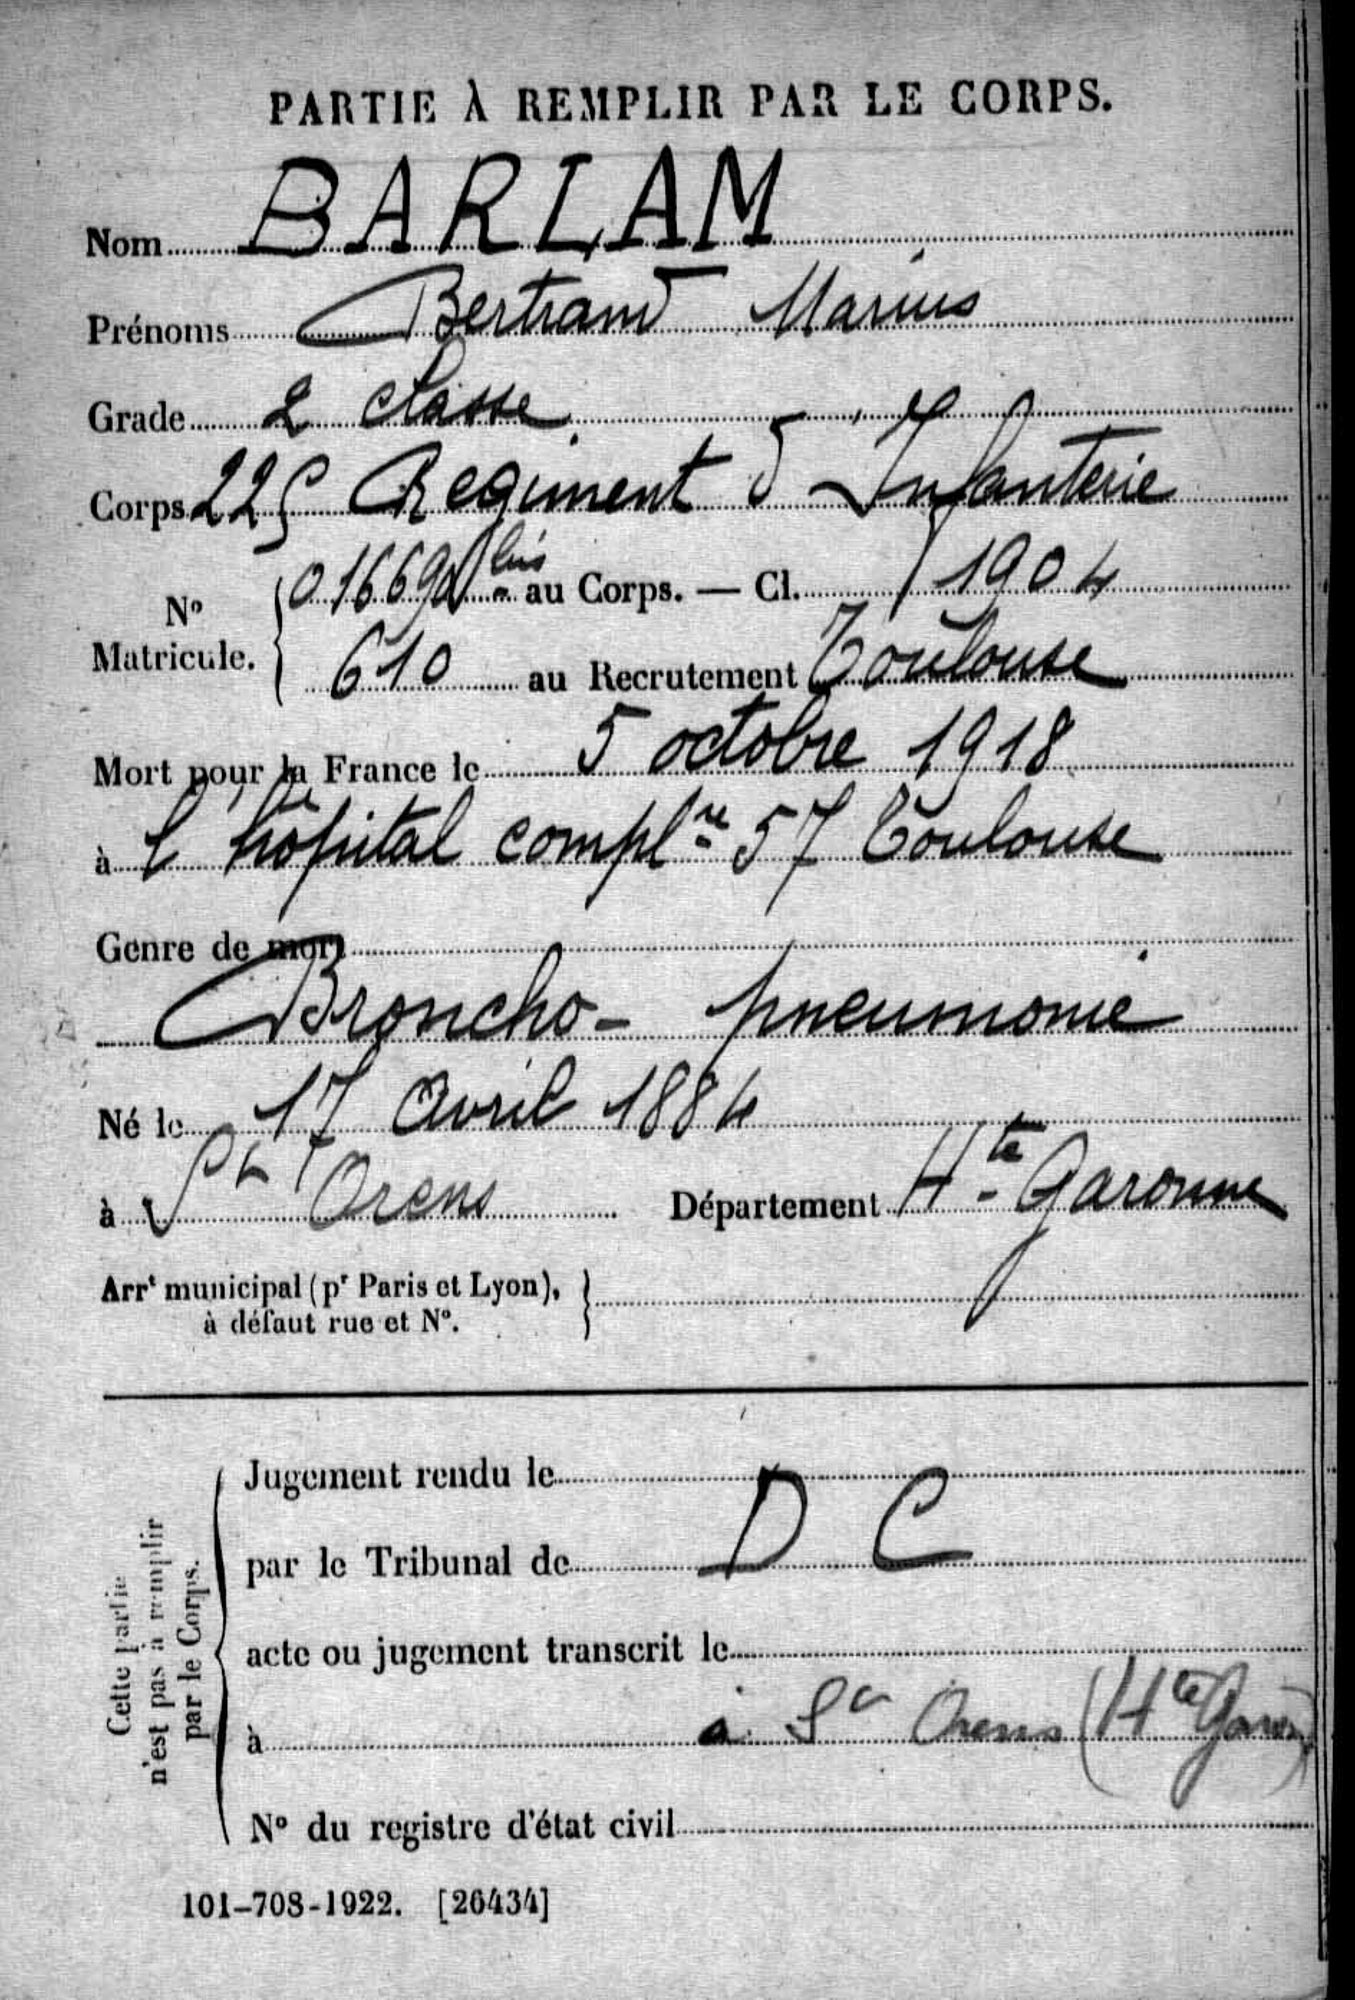 PARTIE À REMPLIR PAR LE CORPS.
Nom BARLAM
Prénoms Bertrand Marius
Grade 2 classe
Corps 225 Régiment d'Infanterie
N° Matricule. 01669 bis au Corps. — Cl. 1904
610 au Recrutement Toulouse
Mort pour la France le 5 octobre 1918
à l'hôpital compl re 57 Toulouse
Genre de mort
Broncho-pneumonie
Né le 17 Avril 1884
à St Orens Département Hte-Garonne
Arrt municipal (pr Paris et Lyon),
à défaut rue et N°.
Cette partie
n'est pas à remplir
par le Corps.
Jugement rendu le
par le Tribunal de D C
acte ou jugement transcrit le
à à St Orens (Hte Garonne)
N° du registre d'état civil
101-708-1922. [26434]